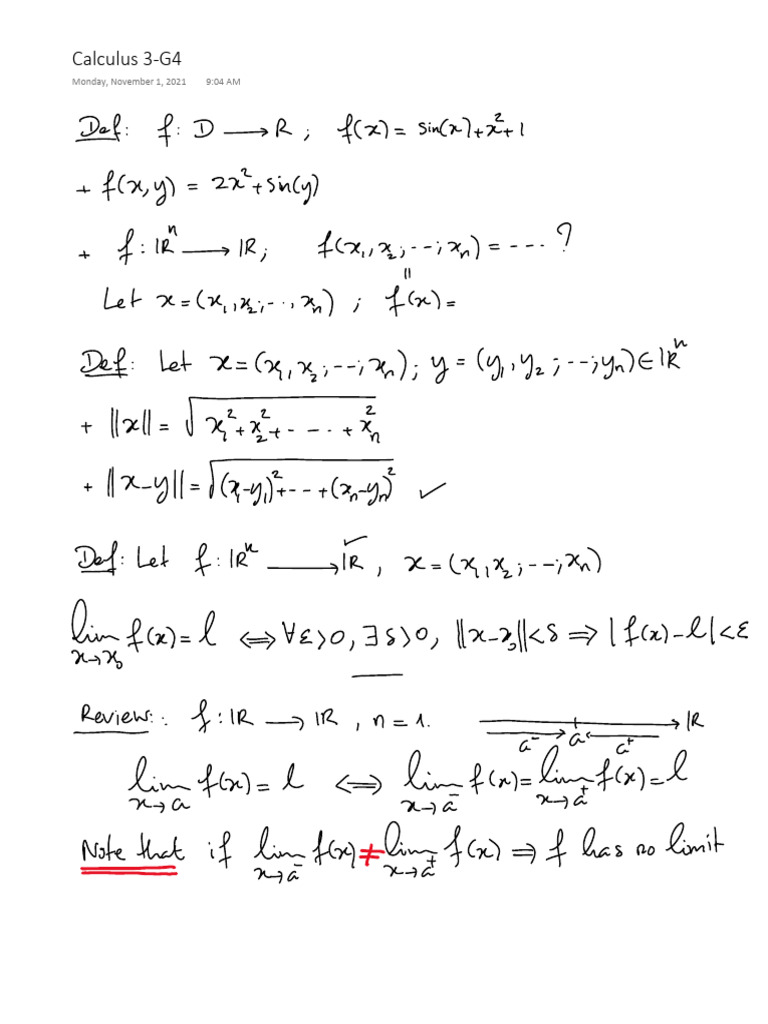 Calculus 3-G4
Monday, November 1, 2021 9:04 AM
Def: f: D ⟶ R ; f(x) = sin(x)+x²+1
+ f(x,y) = 2x²+sin(y)
+ f: ℝⁿ ⟶ ℝ; f(x₁,x₂;--;xₙ) = --- . ?
॥
Let x=(x₁,x₂;-..,xₙ) ; f(x)=
Def: Let x=(x₁,x₂;--;xₙ); y=(y₁,y₂;--;yₙ)∈ℝⁿ
+ ||x|| = √(x₁²+x₂²+- - . - .+xₙ²)
+ ||x-y|| = √((x₁-y₁)²+--+(xₙ-yₙ)²) ✓
Def: Let f: ℝⁿ ⟶ ℝ ✓, x=(x₁,x₂;--;xₙ)
lim x→x₀ f(x)=l ⟺ ∀ε>0, ∃δ>0, ||x-x₀||<δ ⟹ |f(x)-l|<ε
Review: . f: ℝ ⟶ ℝ , n=1. a⁻ a a⁺ ℝ
lim x→a f(x)=l ⟺ lim x→a⁻ f(x)=lim x→a⁺ f(x)=l
Note that if lim x→a⁻ f(x) ≠ lim x→a⁺ f(x) ⟹ f has no limit